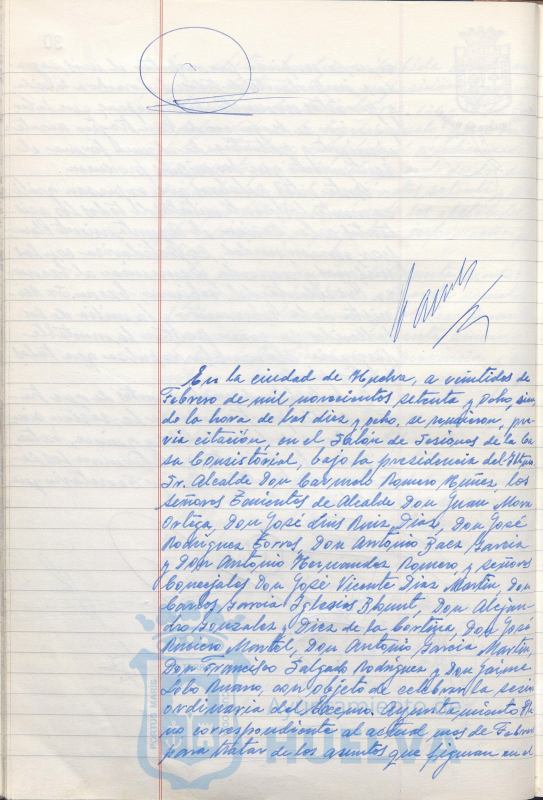 En la ciudad de Huelva, a veintidos de
Febrero de mil novecientos setenta y ocho, sien
do la hora de las diez y ocho, se reunieron, pre
via citación, en el Salón de Sesiones de la Ca
sa Consistorial, bajo la presidencia del Iltmo.
Sr. Alcalde Don Carmelo Romero Núñez, los
señores Tenientes de Alcalde Don Juan Mora
Ortega, Don José Luis Ruiz Diaz, Don José
Rodríguez Torres, Don Antonio Baez Garcia
y Don Antonio Hernandez Romero y señores
Concejales Don José Vicente Diaz Martín, Don
Carlos Garcia Iglesias Blount, Don Alejan
dro Gonzalez y Diez de la Cortina, Don José
Don Antonio Garcia Martín,
Don Francisco Salgado Rodríguez y Don Jaime
Lobo con objeto de celebrar la sesión
ordinaria del Excmo. Ayuntamiento Ple
no correspondiente al actual mes de Febrero
para tratar de los asuntos que figuran en el
PORTUS MARIS
Ayuntamiento de
HUELVA